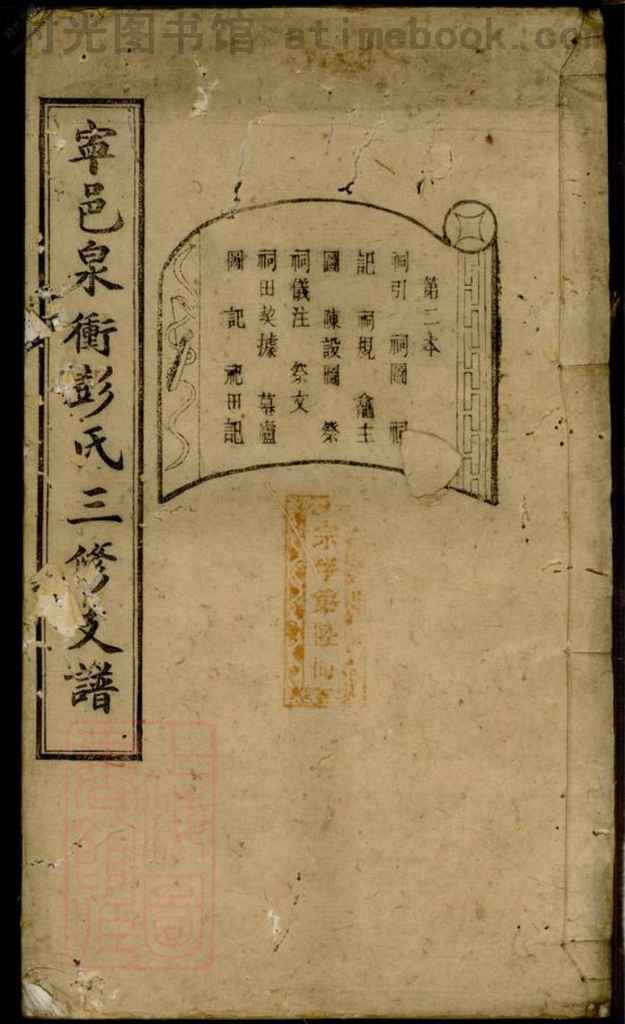 时光图书馆 atimebook.com
寧邑泉衝彭氏三修支譜
第二本
祠引 祠圖 祠
記 祠規 龕主
圖 陳設圖 祭
祠儀注 祭文
祠田契據 墓廬
圖 記 祀田記
宗字第